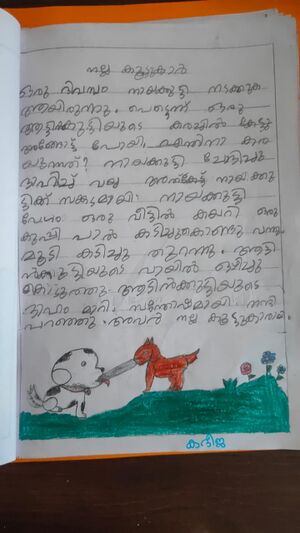 നല്ല കൂട്ടുകാർ
ഒരു ദിവസം നായക്കുട്ടി നടക്കുക
ആയിരുന്നു. പെട്ടെന്ന് ഒരു
ആട്ടിൻകുട്ടിയുടെ കരച്ചിൽ കേട്ടു
അങ്ങോട്ട് പോയി. എന്തിനാ കര
യുന്നത്? നായക്കുട്ടി ചോദിച്ചു
ദാഹിച്ച് വയ്യ അതുകേട്ട് നായക്കു
ട്ടിക്ക് സങ്കടമായി. നായക്കുട്ടി
വേഗം ഒരു വീട്ടിൽ കയറി ഒരു
കുപ്പി പാൽ കടിച്ചുകൊണ്ടു വന്നു
മൂട്ടി കടിച്ചു തുറന്നു. ആട്ടി
ൻകുട്ടിയുടെ വായിൽ ഒഴിച്ചു
കൊടുത്തു. ആട്ടിൻകുട്ടിയുടെ
ദാഹം മാറി. സന്തോഷമായി. നന്ദി
പറഞ്ഞു. അവർ നല്ല കൂട്ടുകാരായി.
കദീജ